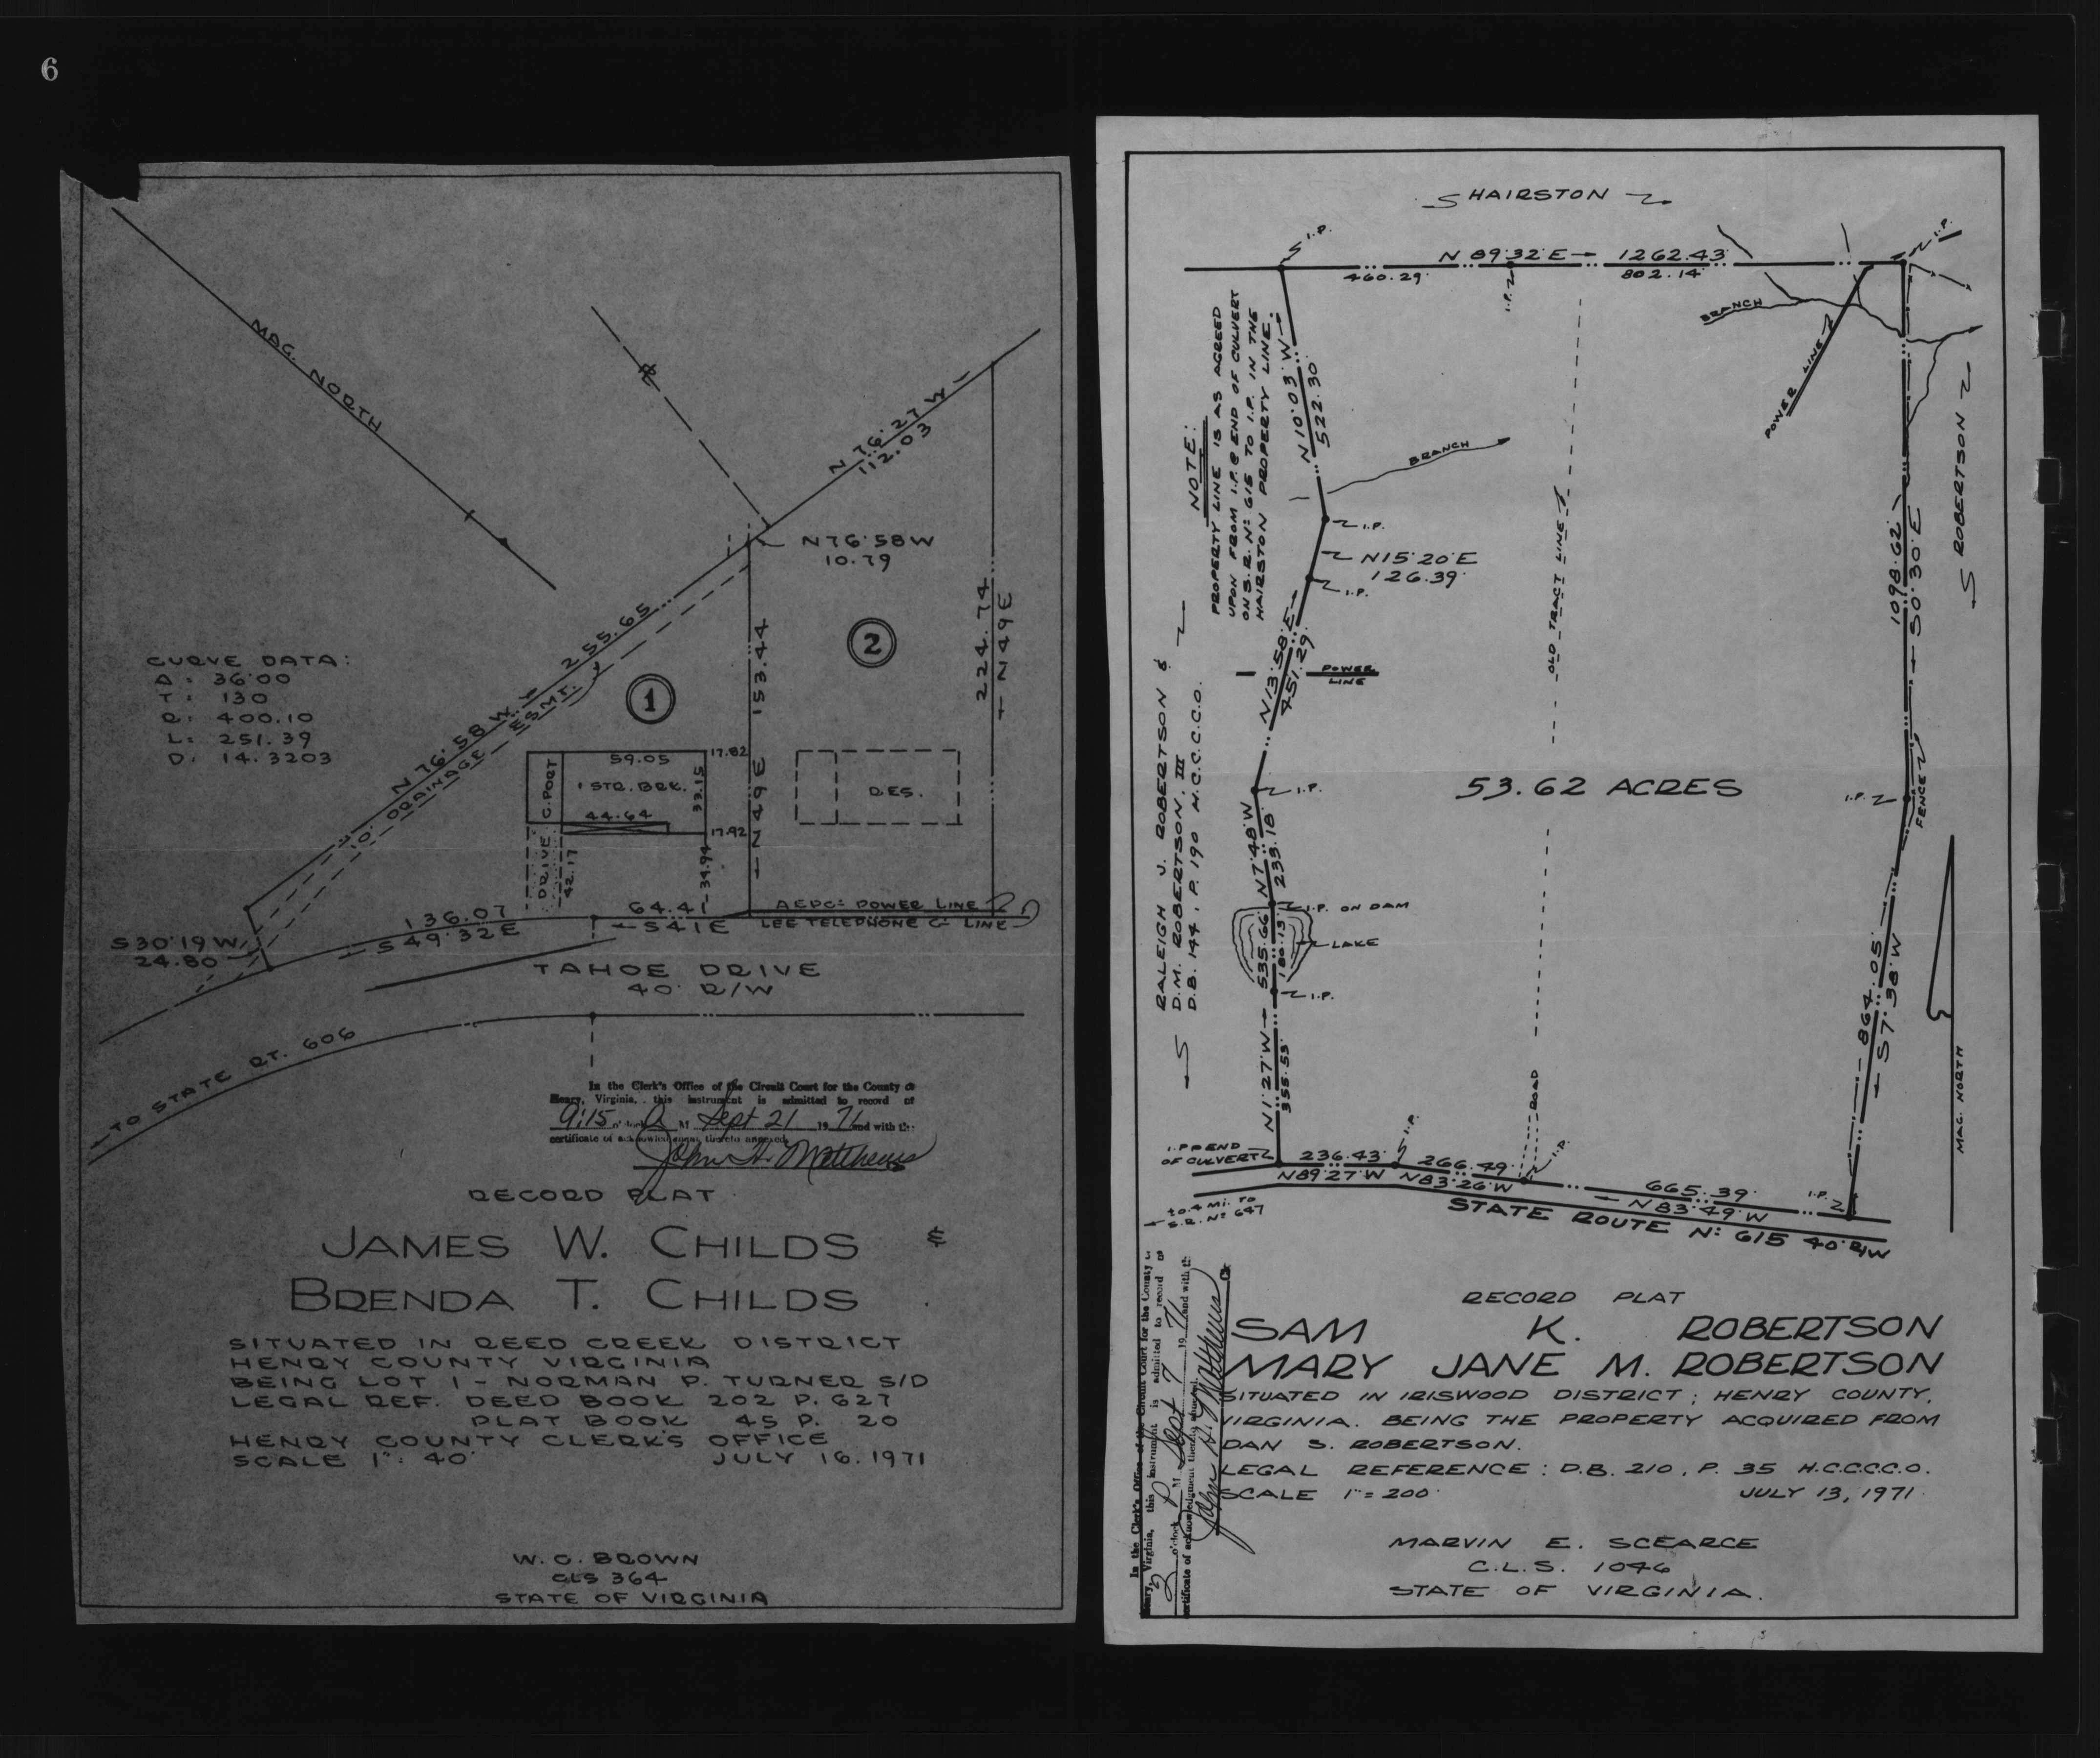 6
MAG. NORTH
N 76°27' W
112.03
N 76°58' W
10.79
N 76°58' W
255.65
10' DRAINAGE ESMT.
CURVE DATA:
Δ: 36°00
T: 130
R: 400.10
L: 251.39
D: 14.3203
1
2
153.44
N 49 E
224.74
N 49 E
59.05
17.82
1 STR. BRK.
C.PORT
33.15
44.64
17.92
DRIVE
42.17
34.94
RES.
AEPCo POWER LINE
LEE TELEPHONE Co LINE
136.07
S 49°32' E
64.41
S 41 E
S 30°19' W
24.80
TAHOE DRIVE
40' R/W
TO STATE RT. 606
In the Clerk's Office of the Circuit Court for the County of
Henry, Virginia, this instrument is admitted to record at
9:15 o'clock A M Sept 21 1971 and with the
certificate of acknowledgment thereto annexed,
John H. Matthews
RECORD PLAT
JAMES W. CHILDS &
BRENDA T. CHILDS
SITUATED IN REED CREEK DISTRICT
HENRY COUNTY VIRGINIA
BEING LOT 1 - NORMAN P. TURNER S/D
LEGAL REF. DEED BOOK 202 P. 627
PLAT BOOK 45 P. 20
HENRY COUNTY CLERK'S OFFICE
SCALE 1": 40' JULY 16. 1971
W. C. BROWN
CLS 364
STATE OF VIRGINIA
HAIRSTON
I.P.
N 89°32' E 1262.43'
460.29'
I.P.
802.14'
I.P.
BRANCH
POWER LINE
ROBERTSON
NOTE:
PROPERTY LINE IS AS AGREED
UPON FROM I.P. @ END OF CULVERT
ON S.R. No 615 TO I.P. IN THE
HAIRSTON PROPERTY LINE.
N 10°03' W
522.30'
BRANCH
I.P.
N 15°20' E
126.39'
I.P.
OLD TRACT LINE
1098.62'
S 0°30' E
N 13°58' E
451.29'
POWER
LINE
RALEIGH J. ROBERTSON &
D.M. ROBERTSON, III
D.B. 144, P. 190 H.C.C.C.O.
I.P.
53.62 ACRES
I.P.
FENCE
N 7°48' W
233.18'
I.P. ON DAM
LAKE
535.66'
180.13'
I.P.
N 1°27' W
355.53'
864.05'
S 7°38' W
MAG. NORTH
ROAD
I.P. @ END
OF CULVERT
236.43'
N 89°27' W
I.P.
266.49'
N 83°26' W
I.P.
665.39'
N 83°49' W
I.P.
STATE ROUTE No 615 40' R/W
to .4 MI. TO
S.R. No 647
In the Clerk's Office of the Circuit Court for the County of
Henry, Virginia, this instrument is admitted to record at
o'clock P M Sept 7 1971 and with the
certificate of acknowledgment thereto annexed,
John H. Matthews Clk
RECORD PLAT
SAM K. ROBERTSON
MARY JANE M. ROBERTSON
SITUATED IN IRISWOOD DISTRICT; HENRY COUNTY,
VIRGINIA. BEING THE PROPERTY ACQUIRED FROM
DAN S. ROBERTSON.
LEGAL REFERENCE: D.B. 210, P. 35 H.C.C.C.O.
SCALE 1" = 200' JULY 13, 1971
MARVIN E. SCEARCE
C.L.S. 1046
STATE OF VIRGINIA.